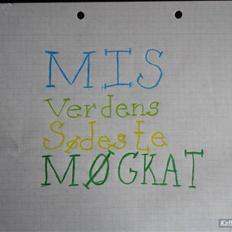 MIS
Verdens
Sødeste
MØGKAT